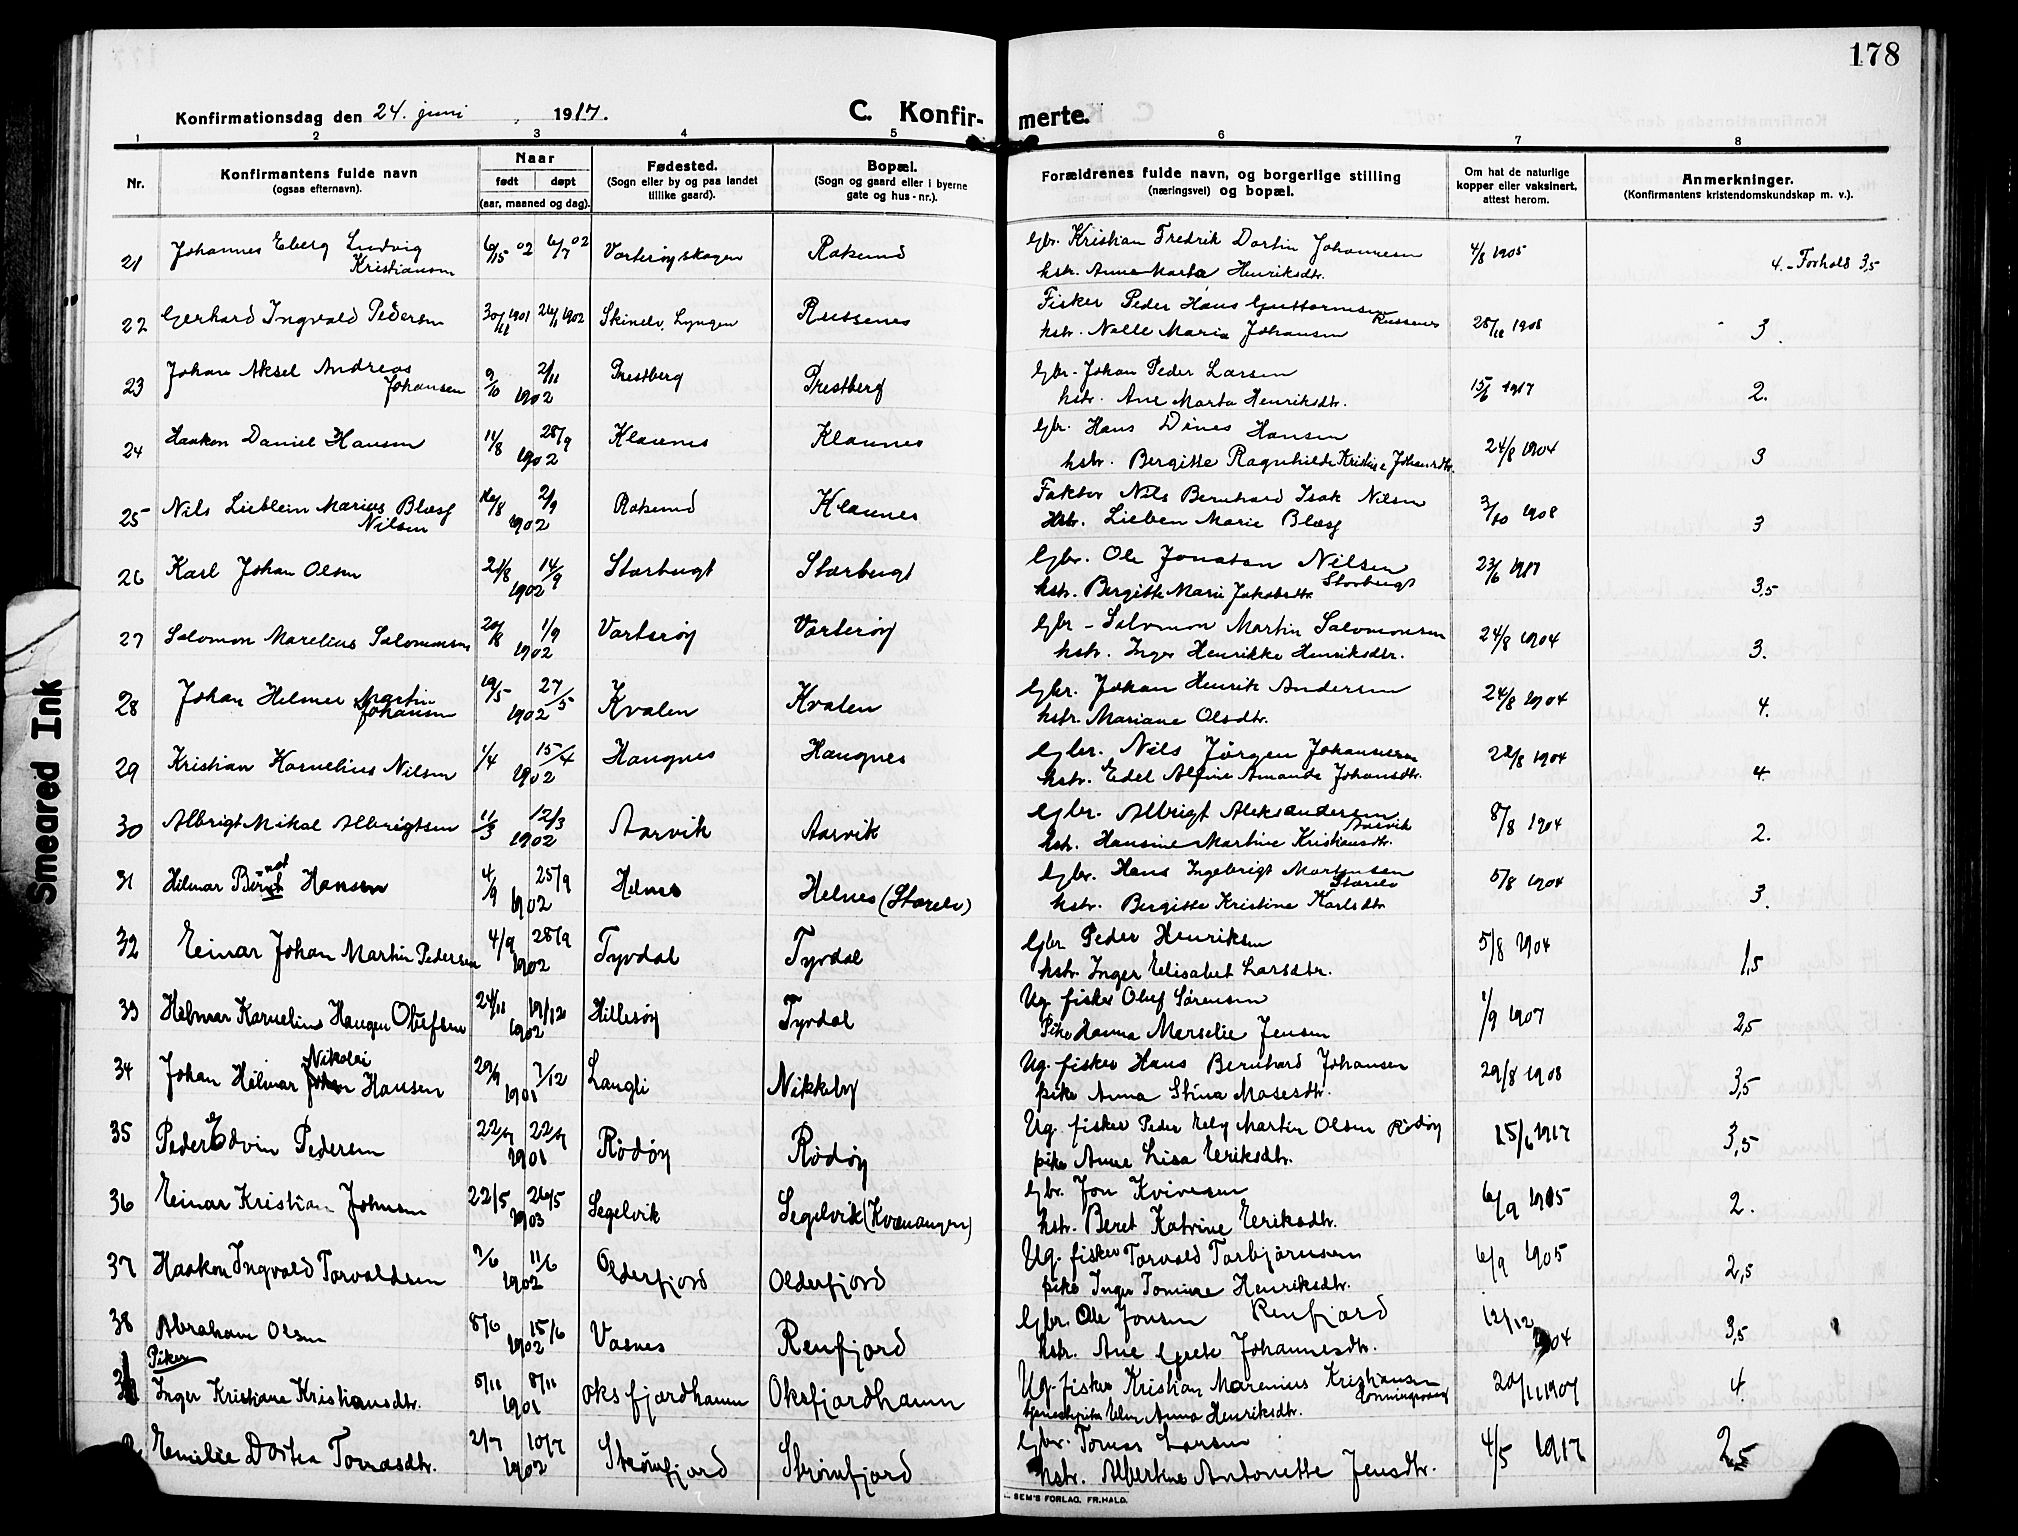 178
Konfirmationsdag den 24. juni , 1917.
C. Konfir- merte.
1 2 3 4 5 6 7 8
Nr.
Konfirmantens fulde navn
(ogsaa efternavn).
Naar
født døpt
(aar, maaned og dag).
Fødested.
(Sogn eller by og paa landet
tillike gaard).
Bopæl.
(Sogn og gaard eller i byerne
gate og hus-nr.).
Forældrenes fulde navn, og borgerlige stilling
(næringsvei) og bopæl.
Om hat de naturlige
kopper eller vaksinert,
attest herom.
Anmerkninger.
(Konfirmantens kristendomskundskap m. v.).
21 Johannes Eberg Ludvig Kristiansen 02 6/7 02 Vorterøyskagen Rotsund Gbr. Kristian Fredrik Dortin Johannesen 4/8 1905 4.-Forhold 3,5
hstr. Anna Marta Henriksdtr.
22 Gerhard Ingvald Pedersen 30/11 1901 26/1 1902 Skinelv, Lyngen Russenes Fisker Peder Hans Guttormsen Russenes 3
hstr. Nelle Maria Johansen
23 Johan Aksel Andreas Johansen 9/10 2/11 1902 Prestberg Prestberg Gbr. Johan Peder Larsen 15/6 1917 2.
hstr. Ane Marta Henriksdtr.
24 Haakon Daniel Hansen 11/8 28/9 1902 Klauenes Klauenes Gbr. Hans Dines Hansen 24/8 1904 3
hstr. Bergitte Ragnhilda Kristine Johansdtr.
25 Nils Lieblein Marius Blæsg Nilsen 16/8 2/9 1902 Rotsund Klauenes Faktor Nils Bernhard Isak Nilsen 3/10 1908 3
Hstr. Lieben Marie Blæsg
26 Karl Johan Olsen 21/8 14/9 1902 Storbugt Storbugt Gbr. Ole Jonatan Nilsen Storbugt 23/6 1917 3,5
hstr. Bergitte Marie Jakobsdtr
27 Salomon Marelius Salomonsen 20/8 1/9 1902 Vorterøy Vorterøy Gbr - Salomon Martin Salomonsen 24/8 1904 3.
hstr. Inger Henrikke Henriksdtr.
28 Johan Helmer Martin Johansen 19/5 27/5 1902 Kvalen Kvalen Gbr. Johan Henrik Andersen 24/8 1904 4.
hstr. Mariane Olsdtr.
29 Kristian Kornelius Nilsen 1/4 15/4 1902 Haugnes Haugnes Gbr. Nils Jørgen Johannesen 22/8 1904 4.
hstr. Edel Alfine Amanda Johansdtr.
30 Albrigt Mikal Albrigtsen 11/3 12/3 1902 Aarvik Aarvik Gbr. Albrigt Aleksandersen Aarvik 8/8 1904 2.
hstr. Hansine Martine Kristiansdtr.
31 Hilmar Hansen 4/9 25/9 1902 Helnes Helnes (Storelv) Gbr. Hans Ingebrigt Mortensen Storelv 5/8 1904 3.
hstr. Bergitte Kristine Karlsdtr
32 Einar Johan Martin Pedersen 4/9 28/9 1902 Tyvdal Tyvdal Gbr Peder Henriksen 5/8 1904 1,5
hstr. Inger Elisabet Larsdtr.
33 Hilmar Kornelius Haugen Olufsen 24/11 19/12 1902 Hillesøy Tyvdal Ug. fisker Oluf Sørensen 1/9 1907 2,5
Pike Hanna Merselie Jensen
34 Johan Hilmar Nikolai Hansen 29/9 7/12 1901 Langli Nikkeby Ug. fisker Hans Bernhard Johansen 29/8 1908 3,5
pike Anna Stina Mosesdtr.
35 Peder Edvin Pedersen 22/7 22/9 1901 Rödöy Rödöy Ug. fisker Peder Martin Olsen Rödöy 15/6 1917 3,5
pike Anne Lisa Eriksdtr.
36 Einar Kristian Johnsen 22/5 26/5 1903 Segelvik Segelvik (Kvænangen) Gbr. Jon Kvivesen 6/9 1905 2.
hstr. Beret Katrine Eriksdtr.
37 Haakon Ingvald Torvaldsen 2/6 11/6 1902 Olderfjord Olderfjord Ug. fisker Torvald Torbjørnsen 6/9 1905 2,5
pike Inger Tomine Henriksdtr.
38 Abraham Olsen 8/6 15/6 1902 Vasnes Renfjord Gbr. Ole Jonsen Renfjord 12/12 1904 3,5
hstr. Ane Grete Johannesdtr.
Piker
Inger Kristiane Kristiansdtr. 5/11 8/11 1901 Oksfjordhamn Oksfjordhamn Ug. fisker Kristian Marenius Kristiansen 20/11 1907 4.
Anna Henriksdtr.
Emilie Dortea Tomasdtr. 2/7 10/7 1902 Strømfjord Strømfjord Gbr. Tomas Larsen 4/5 1917 2,5
hstr. Albertine Antonette Jensdtr.
SEM'S FORLAG, FR.HALD.
Smeared Ink